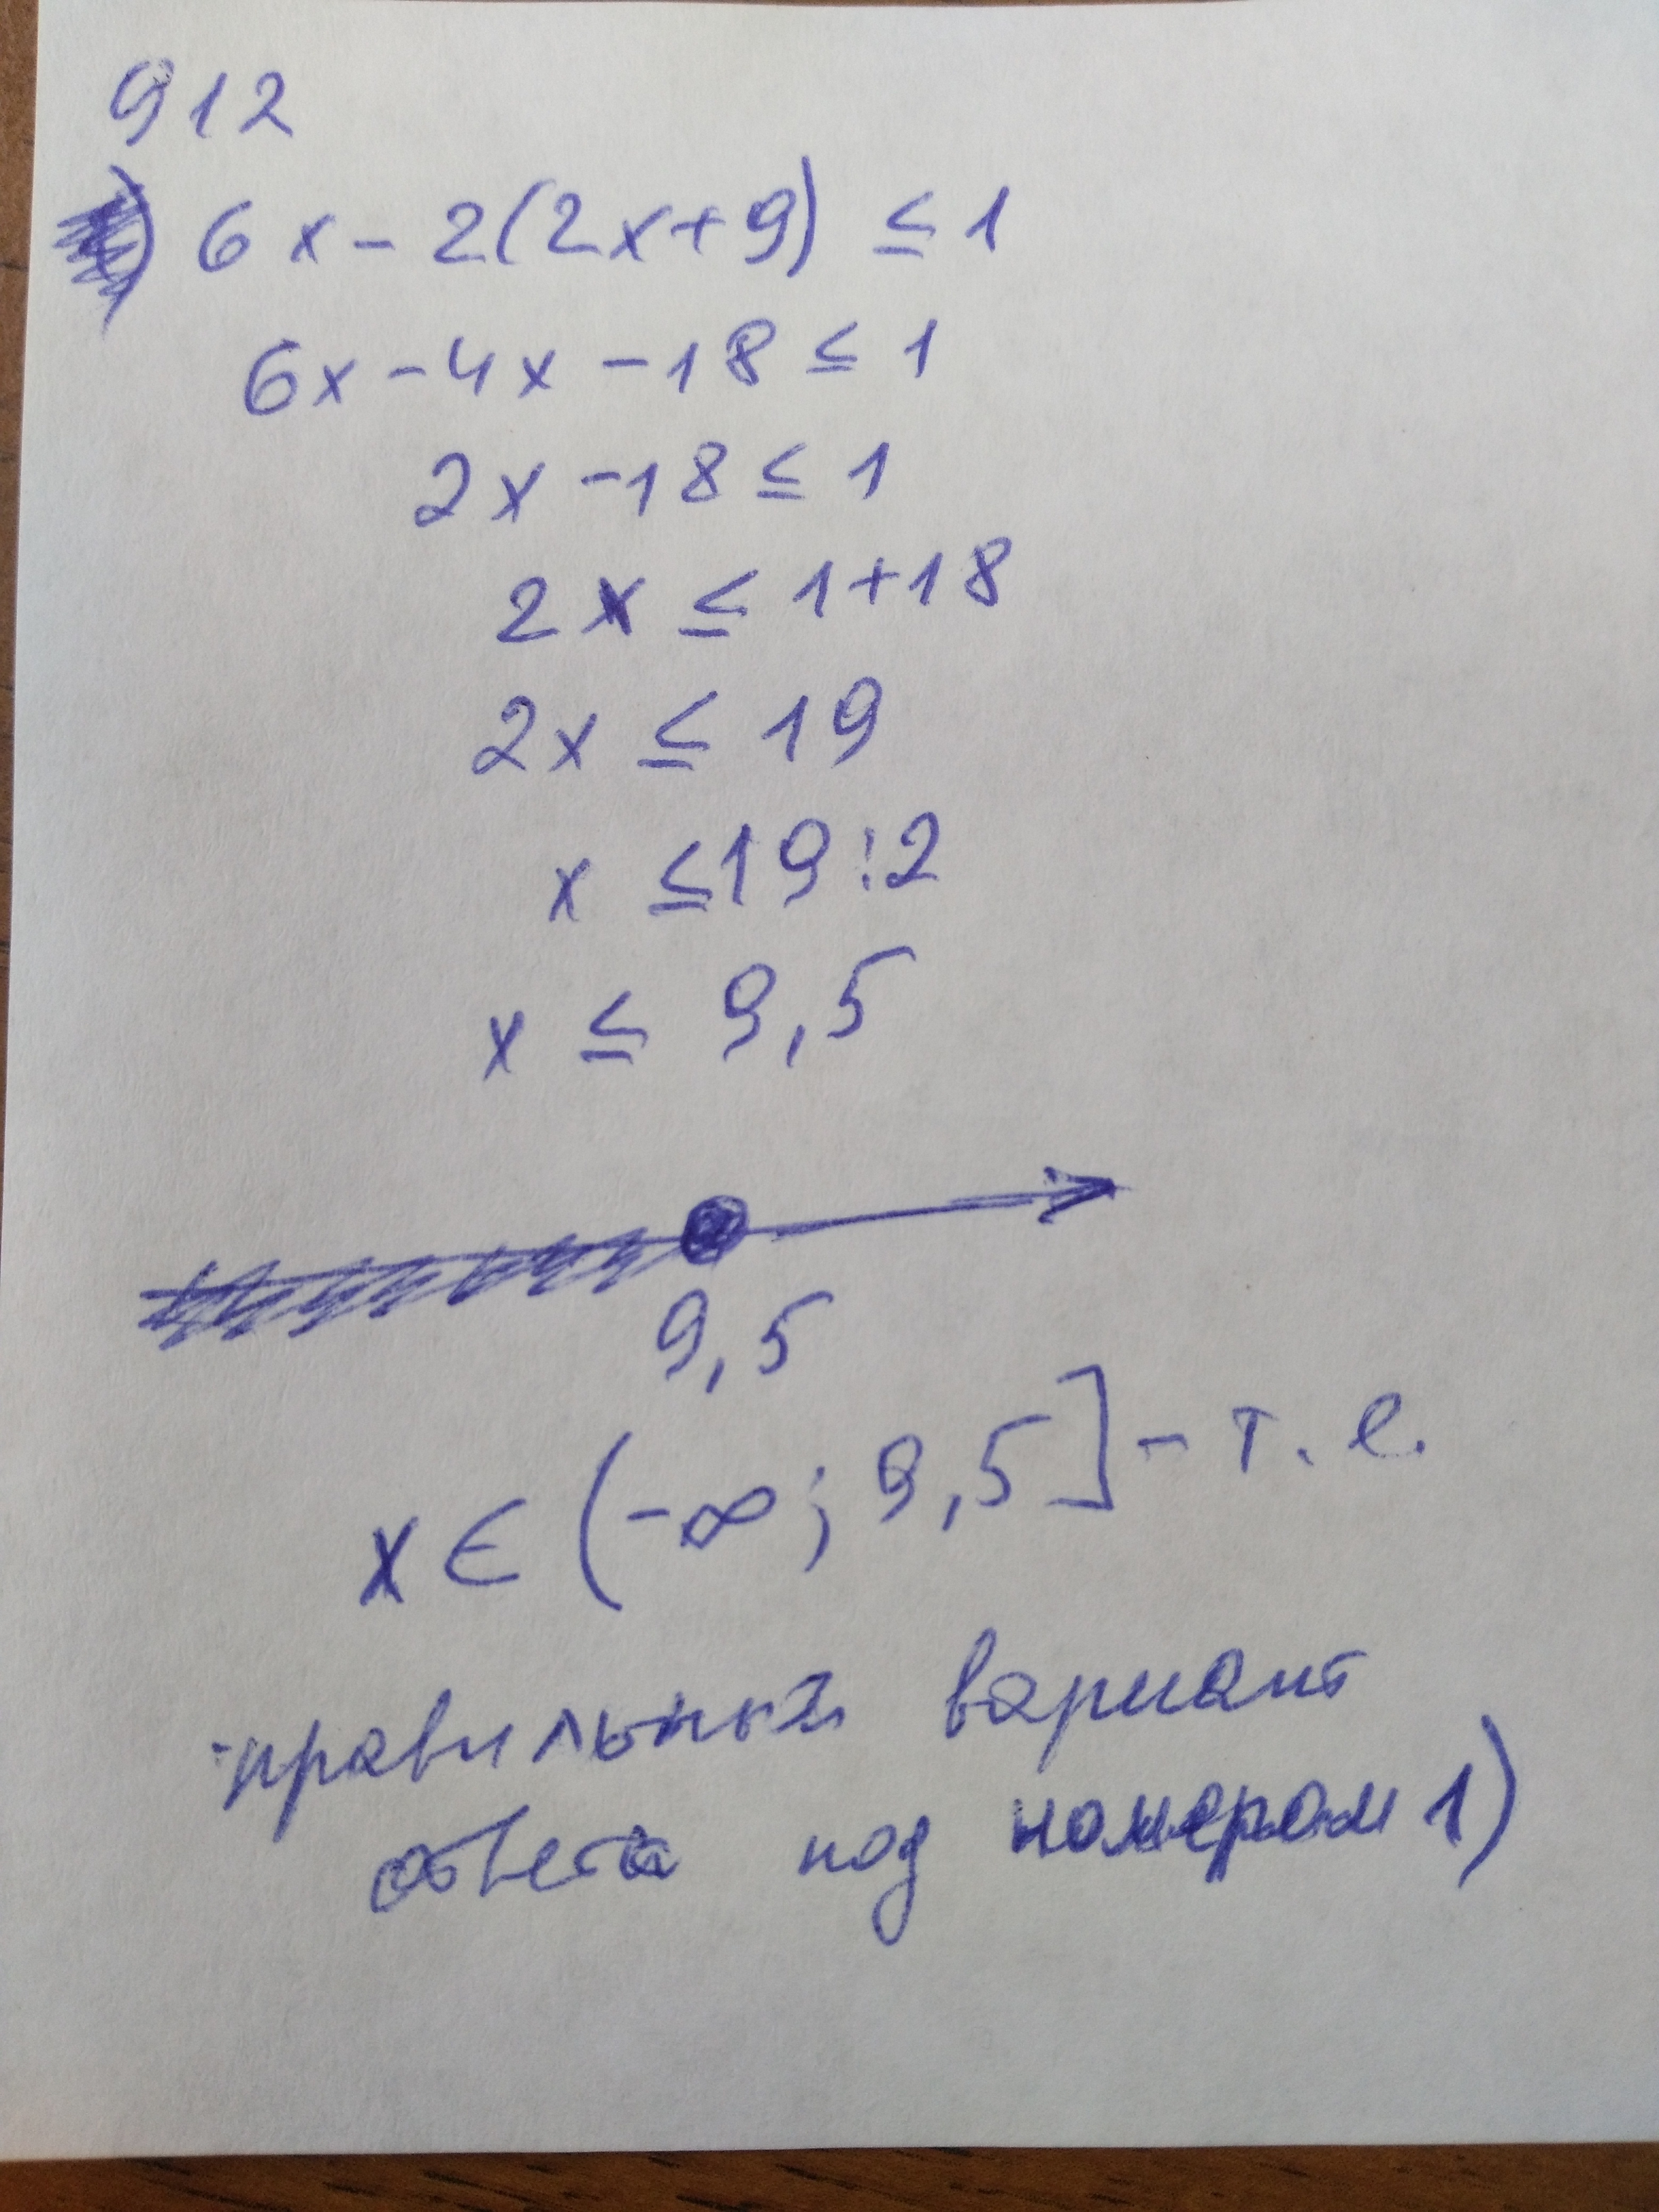 912
) 6x - 2(2x+9) ≤ 1
6x - 4x - 18 ≤ 1
2x - 18 ≤ 1
2x ≤ 1+18
2x ≤ 19
x ≤ 19:2
x ≤ 9,5
9,5
x ∈ (-∞; 9,5] - т.е.
правильный вариант
ответа под номером 1)